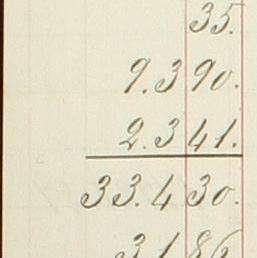 35.
9.390.
2.341.
33.430.
3186